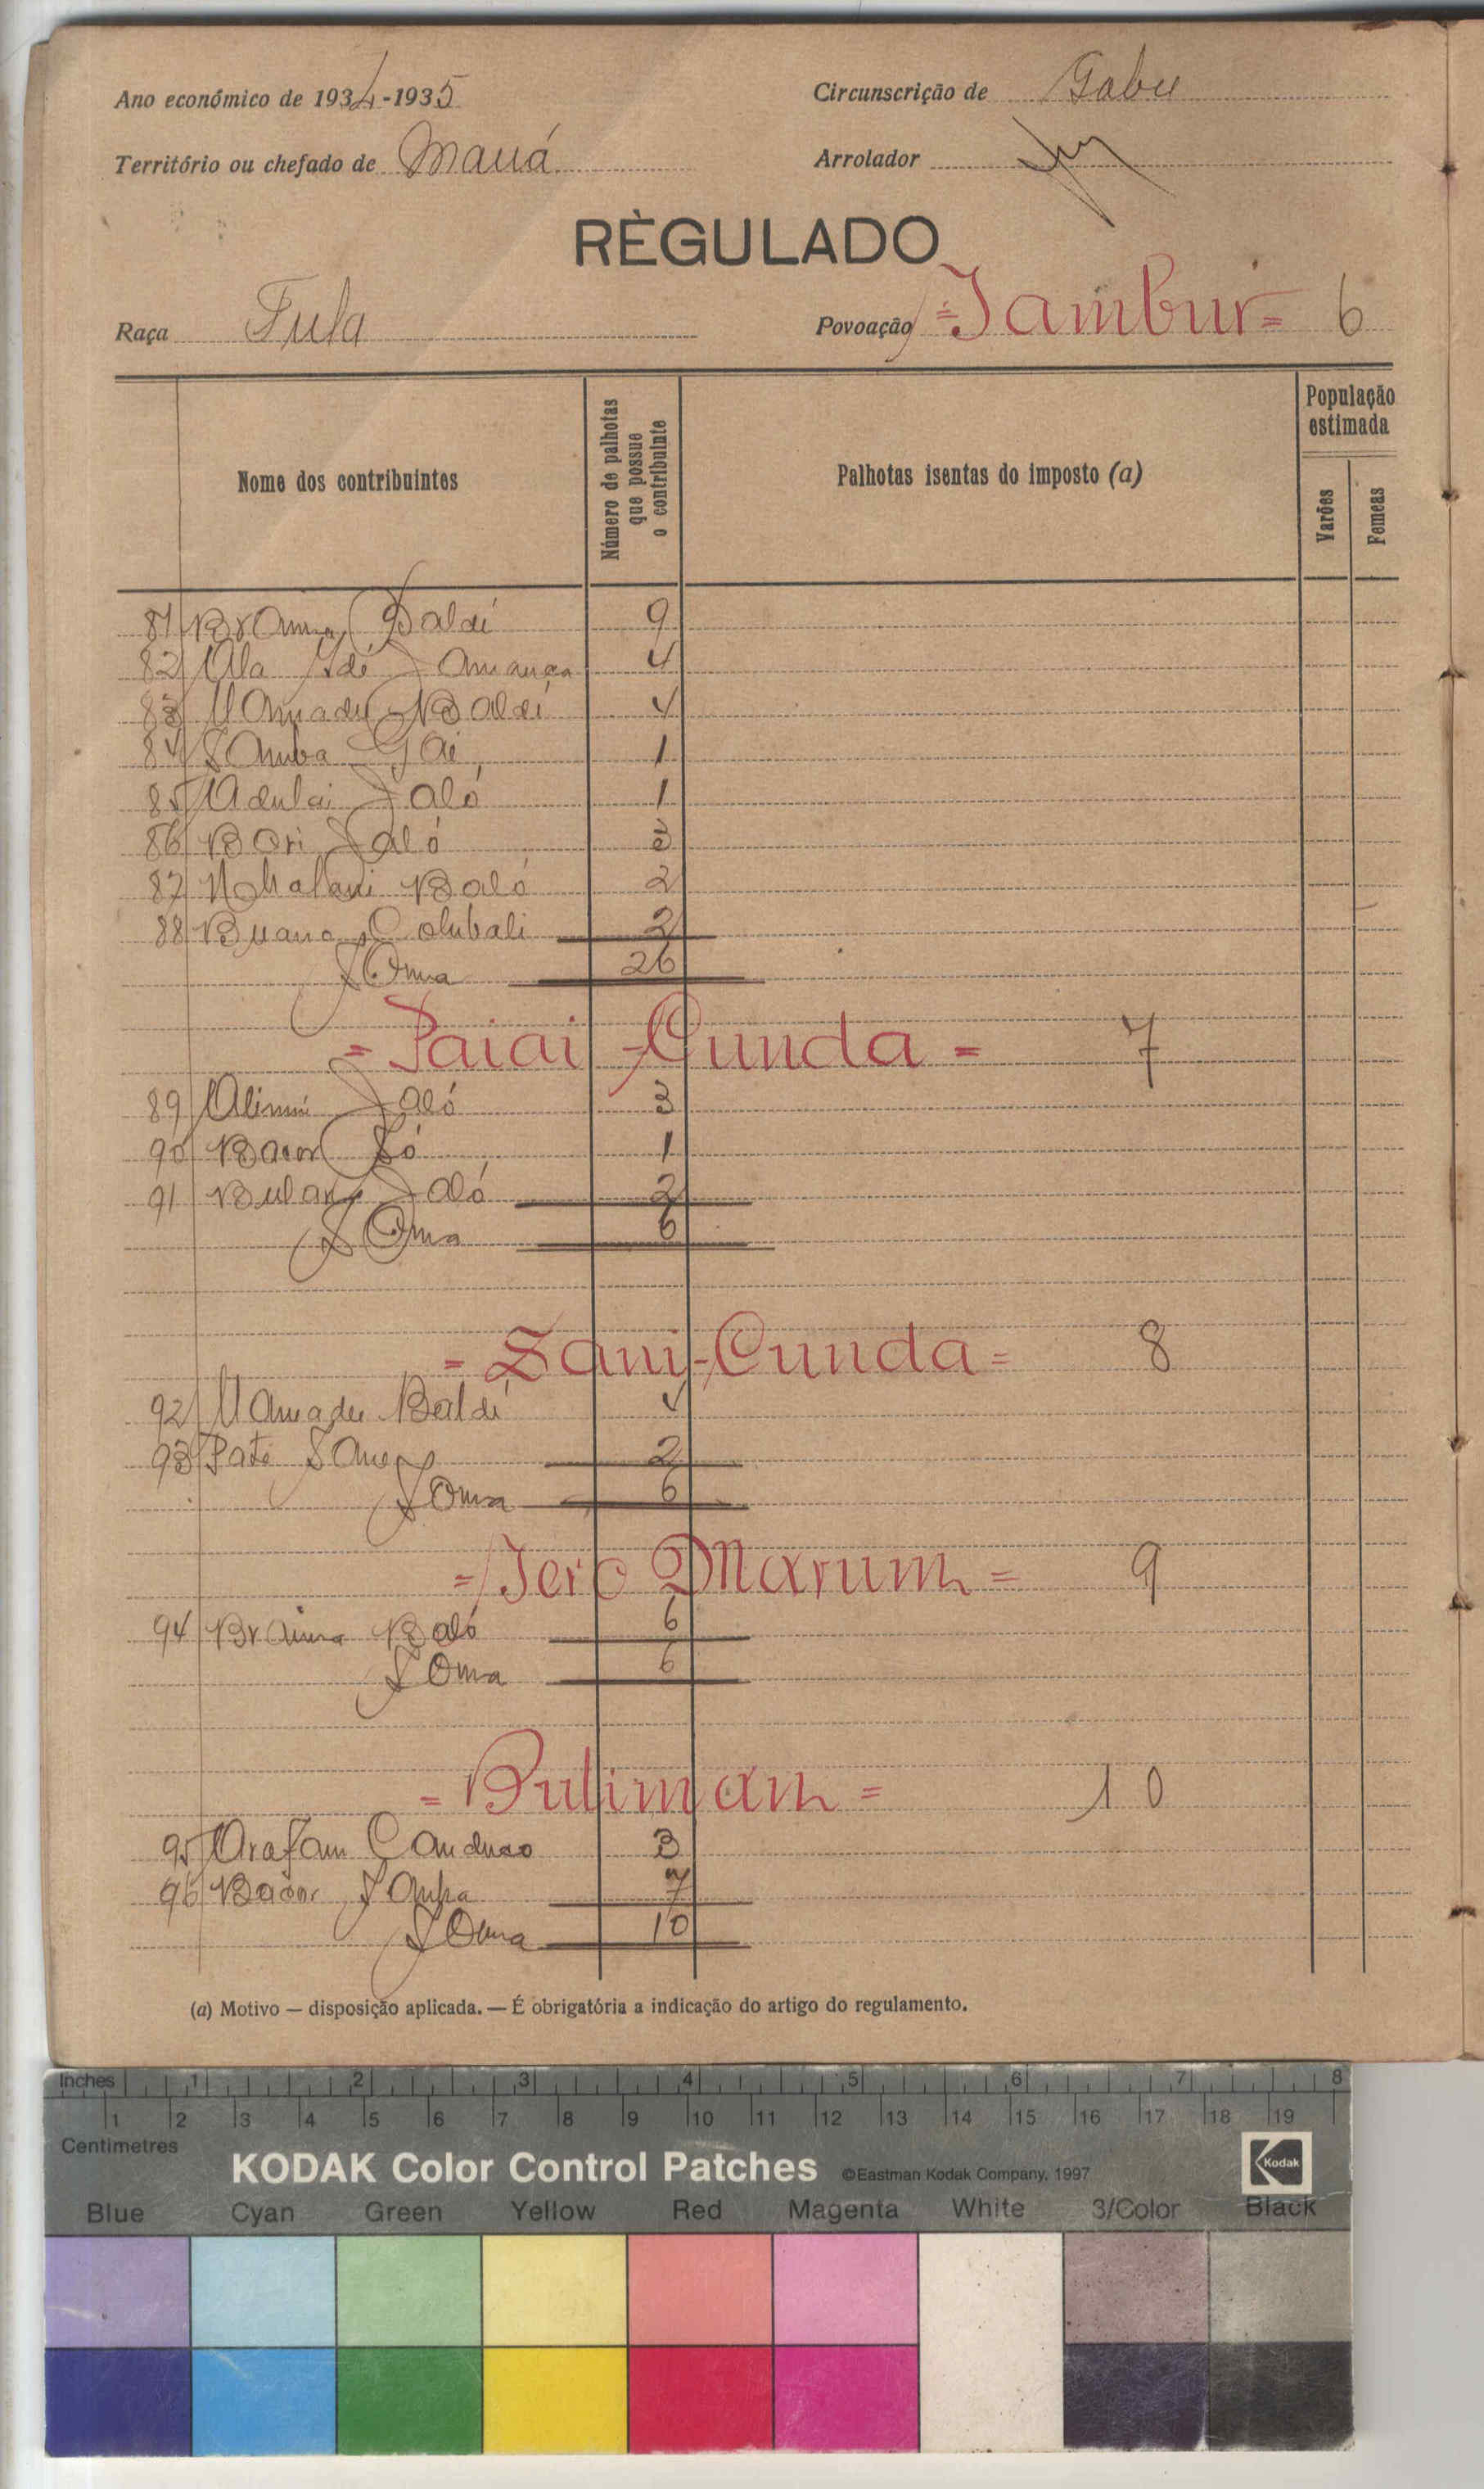 Ano económico de 1934-1935
Circunscrição de Gabu
Território ou chefado de Maná
Arrolador
RÈGULADO
Raça Fula
Povoação =Jambur= 6
Nome dos contribuintes
Número de palhotas que possue o contribuinte
Palhotas isentas do imposto (a)
População estimada
Varões
Femeas
81 Braima Baldé 9
82 4
83 Mamadu Baldé 4
84 Samba 1
85 Adulai Jaló 1
86 Bori Jaló 3
87 Baló 2
88 Colubali 2
Soma 26
=Paiai-Cunda= 7
89 Jaló 3
90 Só 1
91 Jaló 2
Soma 6
=Sani-Cunda= 8
92 Mamadu Baldé 4
93 Paté 2
Soma 6
=Jero Marum= 9
94 Braima Baló 6
Soma 6
=Buliman= 10
95 Arafam 3
96 7
Soma 10
(a) Motivo — disposição aplicada. — É obrigatória a indicação do artigo do regulamento.
Inches 1 2 3 4 5 6 7 8
1 2 3 4 5 6 7 8 9 10 11 12 13 14 15 16 17 18 19
Centimetres
KODAK Color Control Patches ©Eastman Kodak Company, 1997 Kodak
Blue Cyan Green Yellow Red Magenta White 3/Color Black